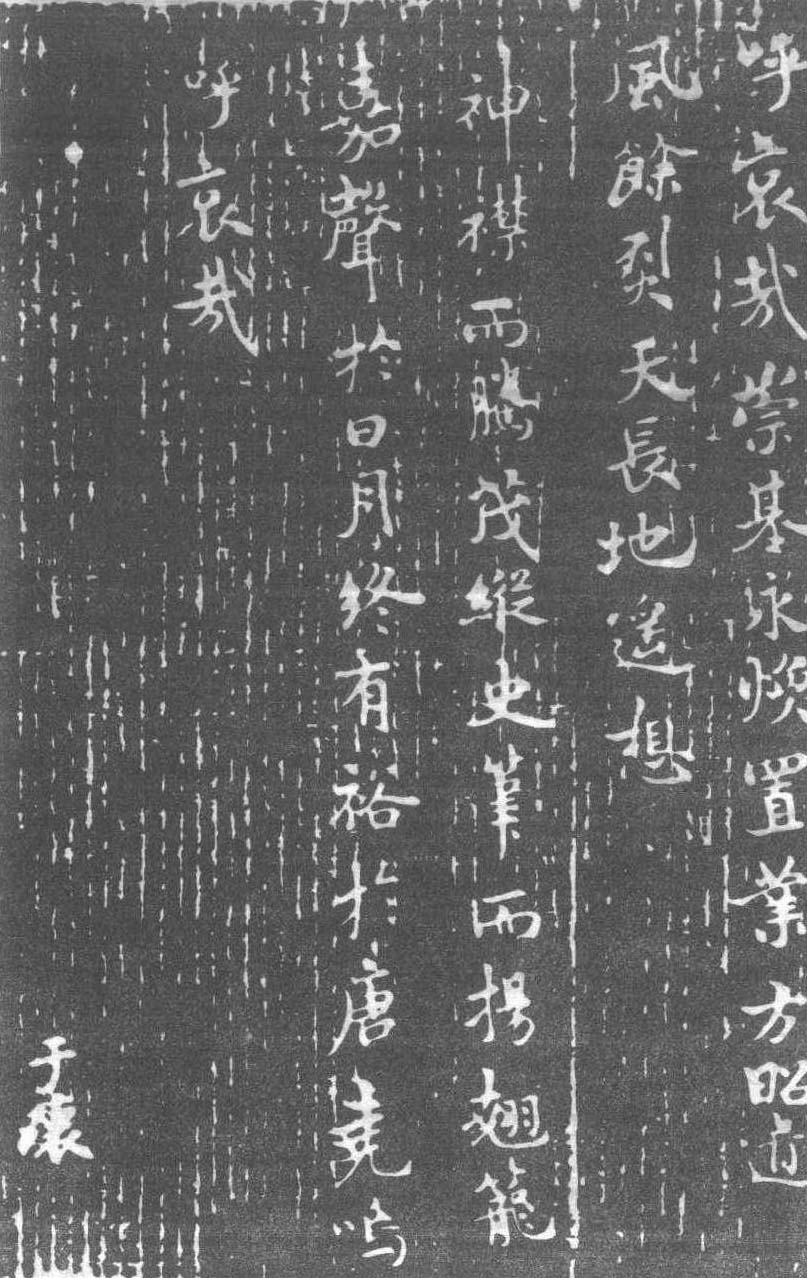 呼哀哉崇基永煥置業方昭
風餘烈天長地遙想
神襟而騰茂縱史筆而揚翹籠
嘉聲於日月終有裕於唐堯嗚
呼哀哉
于